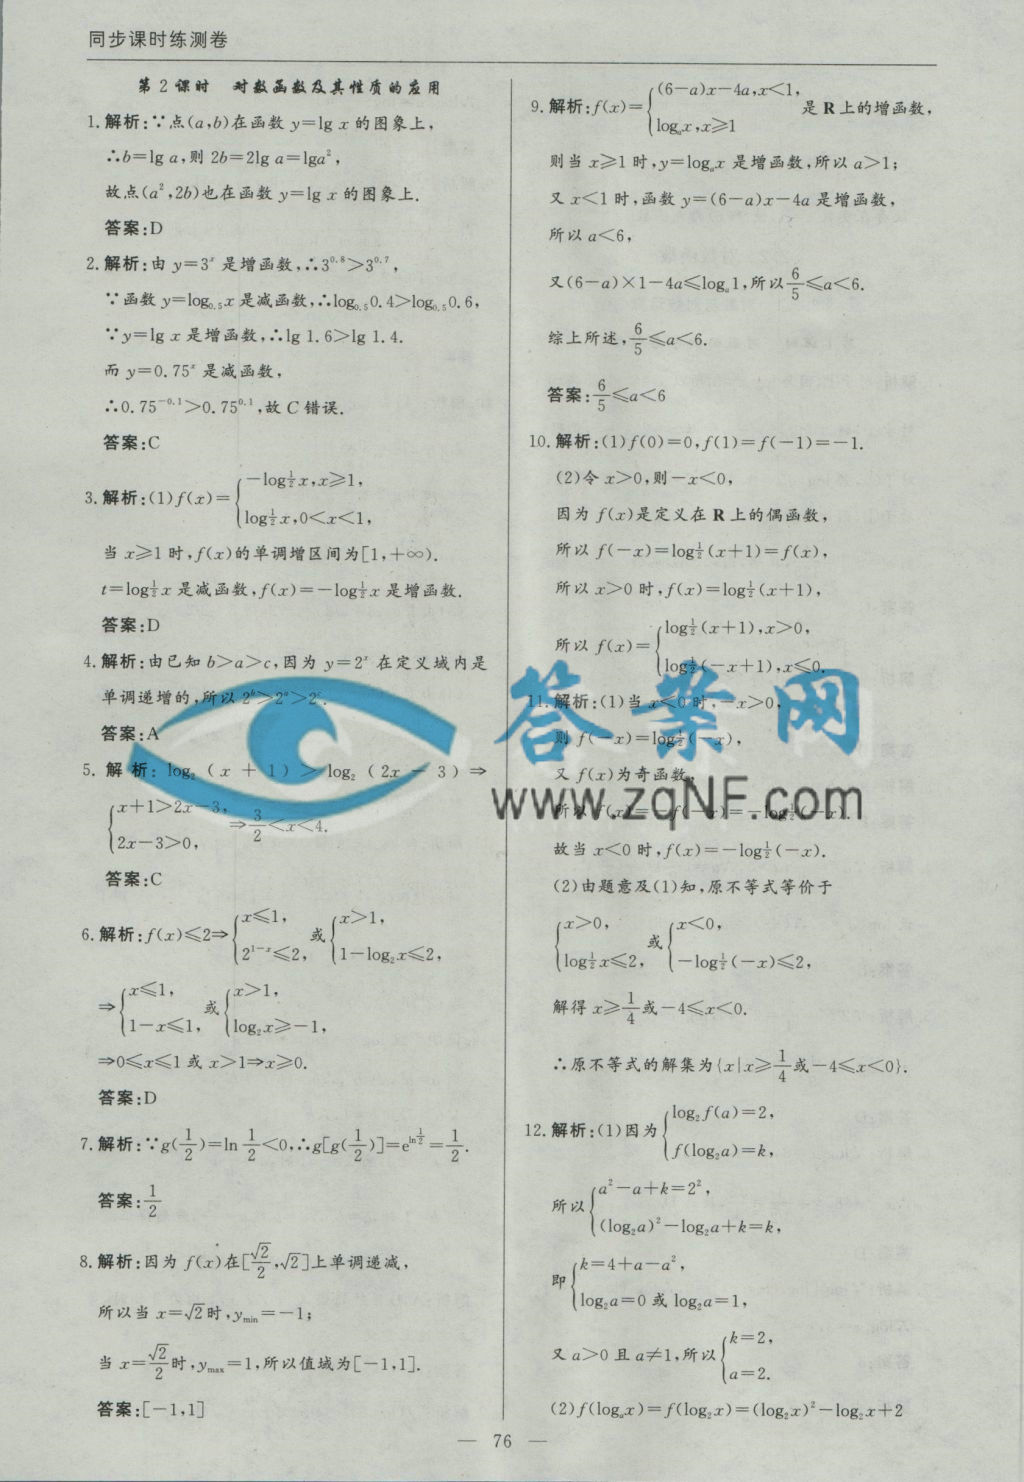 同步课时练测卷
第2课时　对数函数及其性质的应用
1.解析:∵点(a,b)在函数y=lg x的图象上,
∴b=lg a,则2b=2lg a=lga²,
故点(a²,2b)也在函数y=lg x的图象上.
答案:D
2.解析:由y=3ˣ是增函数,∴3^0.8>3^0.7,
∵函数y=log₀.₅x是减函数,∴log₀.₅0.4>log₀.₅0.6,
∵y=lg x是增函数,∴lg 1.6>lg 1.4.
而y=0.75ˣ是减函数,
∴0.75^-0.1>0.75^0.1,故C错误.
答案:C
3.解析:(1)f(x)={-log½x,x≥1,
log½x,0<x<1,
当x≥1时,f(x)的单调增区间为[1,+∞).
t=log½x是减函数,f(x)=-log½x是增函数.
答案:D
4.解析:由已知b>a>c,因为y=2ˣ在定义域内是
单调递增的,所以2^b>2^a>2^c.
答案:A
5.解析:log₂(x+1)>log₂(2x-3)⇒
{x+1>2x-3,
2x-3>0,
⇒3/2<x<4.
答案:C
6.解析:f(x)≤2⇒{x≤1, 2^1-x≤2,或{x>1, 1-log₂x≤2,
⇒{x≤1, 1-x≤1,或{x>1, log₂x≥-1,
⇒0≤x≤1或x>1⇒x≥0.
答案:D
7.解析:∵g(1/2)=ln 1/2<0,∴g[g(1/2)]=e^ln1/2=1/2.
答案:1/2
8.解析:因为f(x)在[√2/2,√2]上单调递减,
所以当x=√2时,y_min=-1;
当x=√2/2时,y_max=1,所以值域为[-1,1].
答案:[-1,1]
9.解析:f(x)={(6-a)x-4a,x<1,
logₐx,x≥1
是R上的增函数,
则当x≥1时,y=logₐx是增函数,所以a>1;
又x<1时,函数y=(6-a)x-4a是增函数,
所以a<6,
又(6-a)×1-4a≤logₐ1,所以6/5≤a<6.
综上所述,6/5≤a<6.
答案:6/5≤a<6
10.解析:(1)f(0)=0,f(1)=f(-1)=-1.
(2)令x>0,则-x<0,
因为f(x)是定义在R上的偶函数,
所以f(-x)=log½(x+1)=f(x),
所以x>0时,f(x)=log½(x+1),
所以f(x)={log½(x+1),x>0,
log½(-x+1),x≤0.
11.解析:(1)当x<0时,-x>0,
则f(-x)=log½(-x),
又f(x)为奇函数,
所以f(x)=-f(-x)=-log½(-x).
故当x<0时,f(x)=-log½(-x).
(2)由题意及(1)知,原不等式等价于
{x>0, log½x≤2,或{x<0, -log½(-x)≤2,
解得x≥1/4或-4≤x<0.
∴原不等式的解集为{x|x≥1/4或-4≤x<0}.
12.解析:(1)因为{log₂f(a)=2,
f(log₂a)=k,
所以{a²-a+k=2²,
(log₂a)²-log₂a+k=k,
即{k=4+a-a²,
log₂a=0或log₂a=1,
又a>0且a≠1,所以{k=2,
a=2.
(2)f(logₐx)=f(log₂x)=(log₂x)²-log₂x+2
答案网
www.zqNF.com
— 76 —